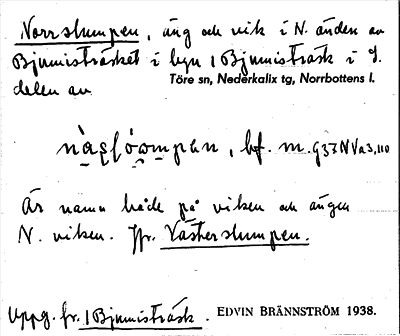 Norrslumpen, äng och vik i N. änden av
Bjumisträsket i byn 1 Bjumisträsk i S.
Töre sn, Nederkalix tg, Norrbottens l.
delen av
bf. m.
Är namn både på viken och ängen
N. viken. Jfr. Västerslumpen.
Uppg. fr. 1 Bjumisträsk. EDVIN BRÄNNSTRÖM 1938.